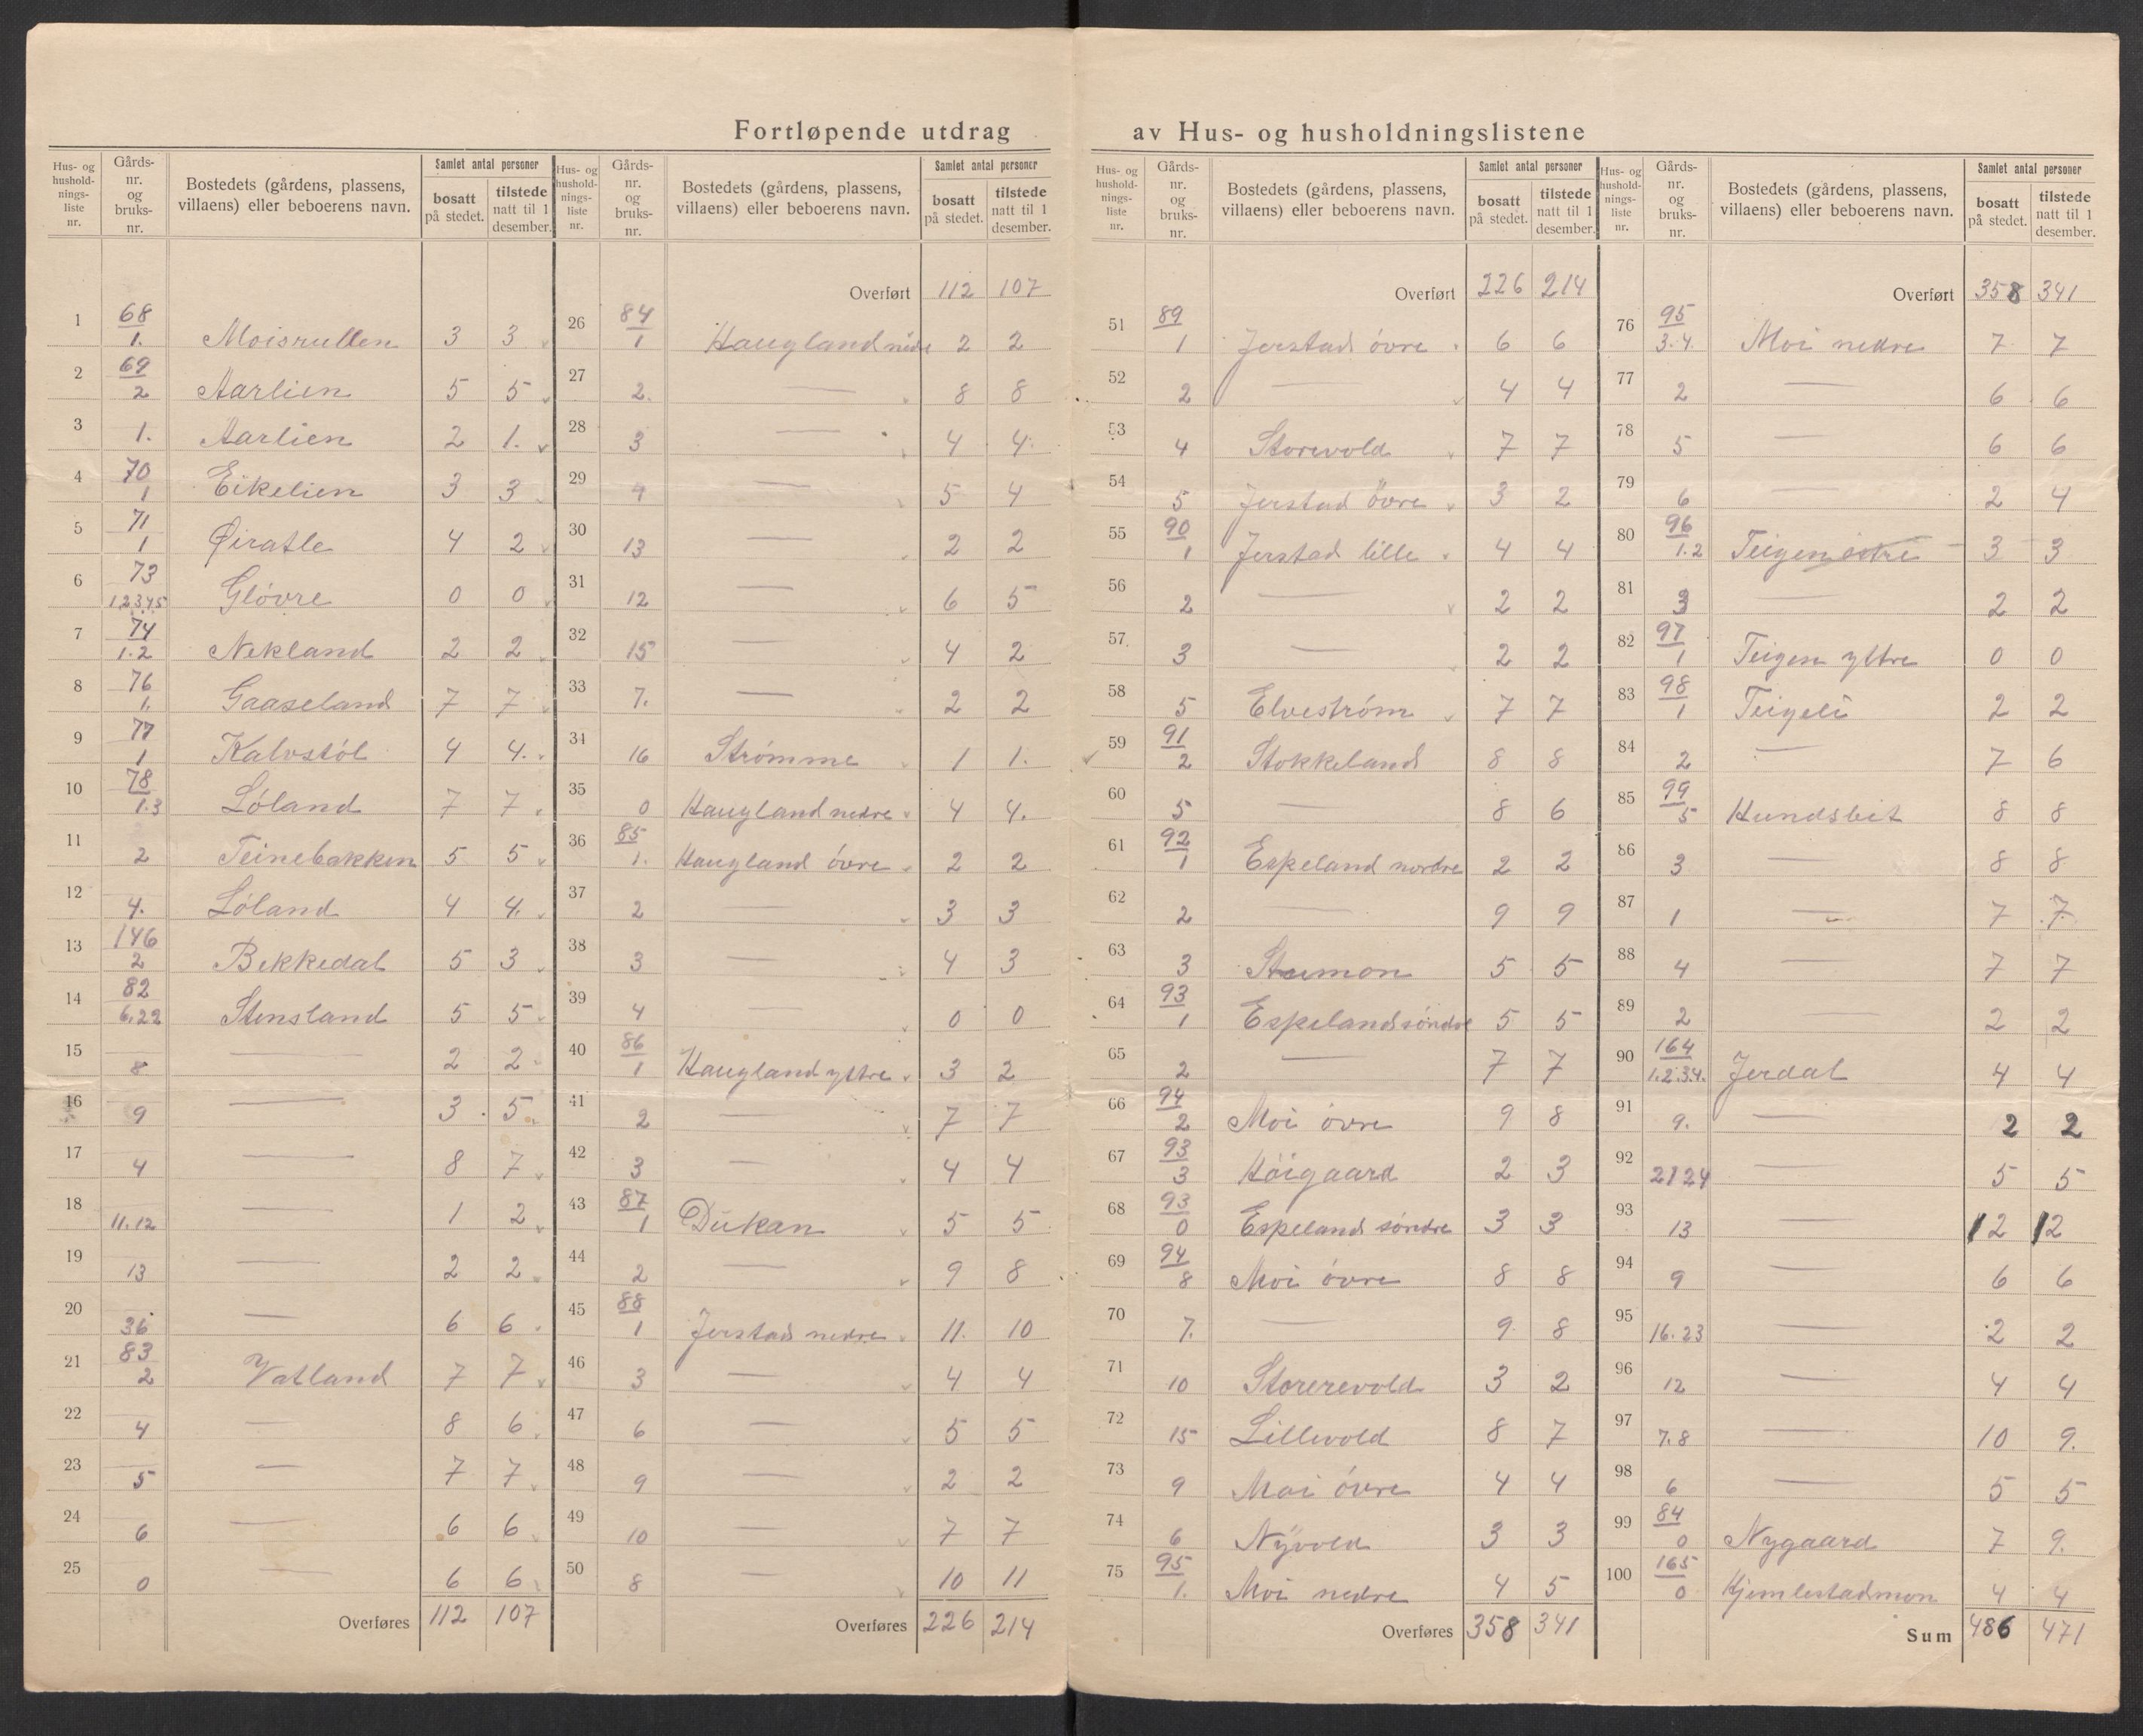 Fortløpende utdrag av Hus- og husholdningslistene
Hus- og husholdningsliste nr. Gårds-nr. og bruks-nr. Bostedets (gårdens, plassens, villaens) eller beboerens navn. Samlet antal personer bosatt på stedet. tilstede natt til 1 desember.
1 68/1. Moisrullen 3 3
2 69/2 Aarlien 5 5
3 1. Aarlien 2 1.
4 70/1 Eikelien 3 3
5 71/1 Øiratle 4 2
6 73/1.2.3.4.5 Gløvre 0 0
7 74/1.2 Nekland 2 2
8 76/1. Gaaseland 7 7
9 77/1 Kalvstøl 4 4.
10 78/1.3 Løland 7 7
11 2 Teinebakken 5 5
12 4. Løland 4 4.
13 146/2 Bekkedal 5 3
14 82/6.22 Stensland 5 5
15 8 — 2 2
16 9 — 3 5
17 4 — 8 7
18 11.12 — 1 2
19 13 — 2 2
20 36 — 6 6
21 83/2 Vatland 7 7
22 4 — 8 6
23 5 — 7 7
24 6 — 6 6
25 0 — 6 6
Overføres 112 107
Hus- og husholdningsliste nr. Gårds-nr. og bruks-nr. Bostedets (gårdens, plassens, villaens) eller beboerens navn. Samlet antal personer bosatt på stedet. tilstede natt til 1 desember.
Overført 112 107
26 84/1 Haugland nedre 2 2
27 2. — 8 8
28 3 — 4 4.
29 4 — 5 4
30 13 — 2 2
31 12 — 6 5
32 15 — 4 2
33 7. — 2 2
34 16 Strømme 1 1.
35 0 Haugland nedre 4 4.
36 85/1. Haugland øvre 2 2
37 2 — 3 3
38 3 — 4 3
39 4 — 0 0
40 86/1 Haugland yttre 3 2
41 2 — 7 7
42 3 — 4 4
43 87/1 Dukan 5 5
44 2 — 9 8
45 88/1 Jerstad nedre 11. 10
46 3 — 4 4
47 6 — 5 5
48 9 — 2 2
49 10 — 7 7
50 8 — 10 11
Overføres 226 214
Hus- og husholdningsliste nr. Gårds-nr. og bruks-nr. Bostedets (gårdens, plassens, villaens) eller beboerens navn. Samlet antal personer bosatt på stedet. tilstede natt til 1 desember.
Overført 226 214
51 89/1 Jerstad øvre 6 6
52 2 — 4 4
53 4 Storevold 7 7
54 5 Jerstad øvre 3 2
55 90/1 Jerstad lille 4 4
56 2 — 2 2
57. 3 — 2 2
58 5 Elvestrøm 7 7
59 91/2 Stokkeland 8 8
60 5 — 8 6
61 92/1 Espeland nordre 2 2
62 2 — 9 9
63 3 Stemmon 5 5
64 93/1 Espeland søndre 5 5
65 2 — 7 7
66 94/2 Moi øvre 9 8
67 93/3 Høigaard 2 3
68 93/0 Espeland søndre 3 3
69 94/8 Moi øvre 8 8
70 7. — 9 8
71 10 Storerevold 3 2
72 15 Lillevold 8 7
73 9 Moi øvre 4 4
74 6 Nyvold 3 3
75 95/1. Moi nedre 4 5
Overføres 358 341
Hus- og husholdningsliste nr. Gårds-nr. og bruks-nr. Bostedets (gårdens, plassens, villaens) eller beboerens navn. Samlet antal personer bosatt på stedet. tilstede natt til 1 desember.
Overført 358 341
76 95/3.4. Moi nedre 7 7
77 2 — 6 6
78 5 — 6 6
79 6 — 2 4
80 96/1.2 Teigen østre 3 3
81 3 — 2 2
82 97/1 Teigen yttre 0 0
83 98/1 Teigeli 2 2
84 2 — 7 6
85 99/5 Hundsbit 8 8
86 3 — 8 8
87 1 — 7 7.
88 4 — 7 7
89 2 — 2 2
90 164/1.2.3.4. Jerdal 4 4
91 9. — 2 2
92 21 24 — 5 5
93 13 — 12 12
94 9 — 6 6
95 16.23 — 2 2
96 12 — 4 4
97 7.8 — 10 9.
98 6 — 5 5
99 84/0 Nygaard 7 9.
100 165/0 Kjemlestadmon 4 4
Sum 486 471